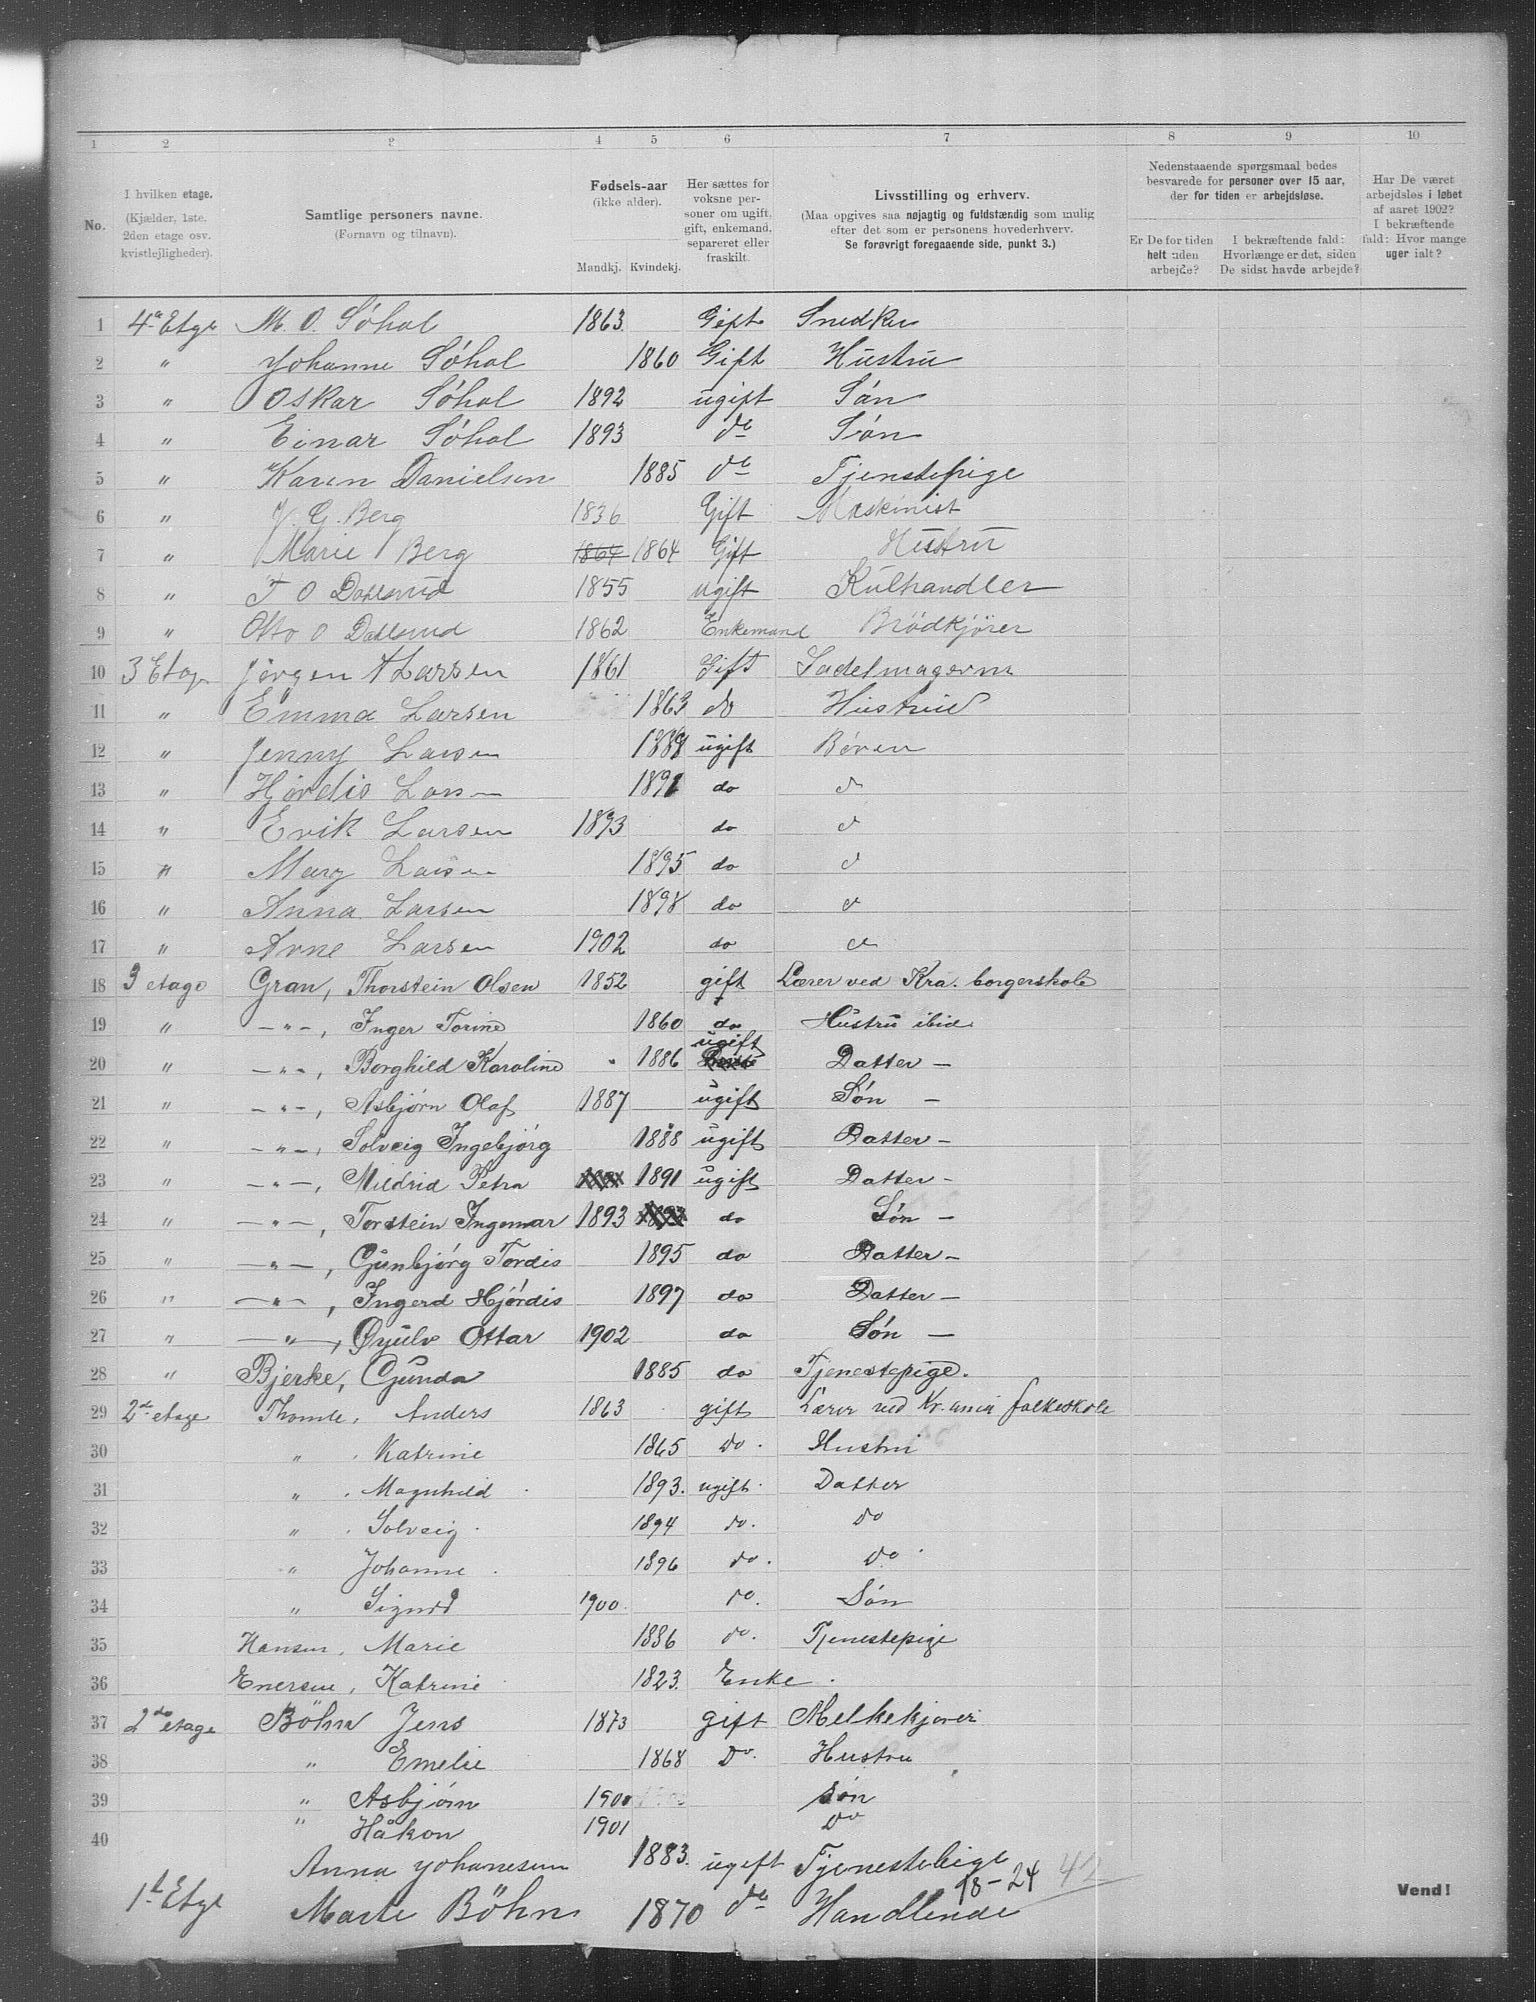 1 2 3 4 5 6 7 8 9 10
No.
I hvilken etage.
(Kjælder, 1ste,
2den etage osv.
kvistlejligheder).
Samtlige personers navne.
(Fornavn og tilnavn).
Fødsels-aar
(ikke alder).
Mandkj. Kvindekj.
Her sættes for
voksne per-
soner om ugift,
gift, enkemand,
separeret eller
fraskilt.
Livsstilling og erhverv.
(Maa opgives saa nøjagtig og fuldstændig som mulig
efter det som er personens hovederhverv.
Se forøvrigt foregaaende side, punkt 3.)
Nedenstaaende spørgsmaal bedes
besvarede for personer over 15 aar,
der for tiden er arbejdsløse.
Er De for tiden
helt uden
arbejde?
I bekræftende fald:
Hvorlænge er det, siden
De sidst havde arbejde?
Har De været
arbejdsløs i løbet
af aaret 1902?
I bekræftende
fald: Hvor mange
uger ialt?
1 4de Etge M. O. Söhol 1863. Gift Snedker
2 " Johanne Söhol 1860 Gift Hustru
3 " Oskar Söhol 1892 ugift Sön
4 " Einar Söhol 1893 do Sön
5 " Karen Danielsen 1885 do Tjenestepige
6 " G. Berg 1836 Gift Maskinist
7 " Marie Berg 1864 1864 Gift Hustru
8 " T O Dahlsrud 1855 ugift Kulhandler
9 " Otto O Dahlsrud 1862 Enkemand Brödkjörer
10 3 Etage Jörgen A Larsen 1861 Gift Sadelmagerm
11 " Emma Larsen 1863 do Hustrue
12 " Jenny Larsen 1889 ugift Børen
13 " Hjørdis Larsen 1891 do d
14 " Erik Larsen 1893 do d
15 " Mary Larsen 1895 do d
16 " Anna Larsen 1898 do d
17 " Arne Larsen 1902 do d
18 3 etage Gran, Thorstein Olsen 1852 gift Lærer ved Kra. borgerskole
19 " —"—, Inger Torine 1860 do Hustru ibid.
20 " —"—, Borghild Karoline 1886 ugift Datter —
21 " —"—, Asbjørn Olaf 1887 ugift Søn —
22 " —"—, Solveig Ingebjørg 1888 ugift Datter —
23 " —"—, Mildrid Petra 1891 ugift Datter -
24 " —"—, Torstein Ingemar 1893 do Søn —
25 " —"—, Gunbjørg Tordis 1895 do Datter —
26 " —"—, Ingerd Hjördis 1897 do Datter —
27 " —"—, Øyulv Ottar 1902 do Søn —
28 " Bjerke, Gunda 1885 do Tjenestepige.
29 2de etage Thomle, Anders 1863 gift Lærer ved Kr.ania folkeskole
30 " Katrine 1865 do. Hustru
31 " Magnhild 1893. ugift. Datter
32 " Solveig. 1894 do. do
33 " Johanne. 1896 do. do.
34 " Sigurd 1900. do. Søn
35 Hansen, Marie 1886 do. Tjenestepige
36 Enersen, Katrine 1823. Enke.
37 2de etage Böhn Jens 1873 gift Melkekjører
38 " Emelie 1868 Do. Hustru
39 " Asbjørn 1900 søn
40 " Håkon 1901 Do
Anna Johanesen 1883. ugift Tjenestebige
18-24 42
1st Etge Marte Böhn 1870 do Handlende
Vend!